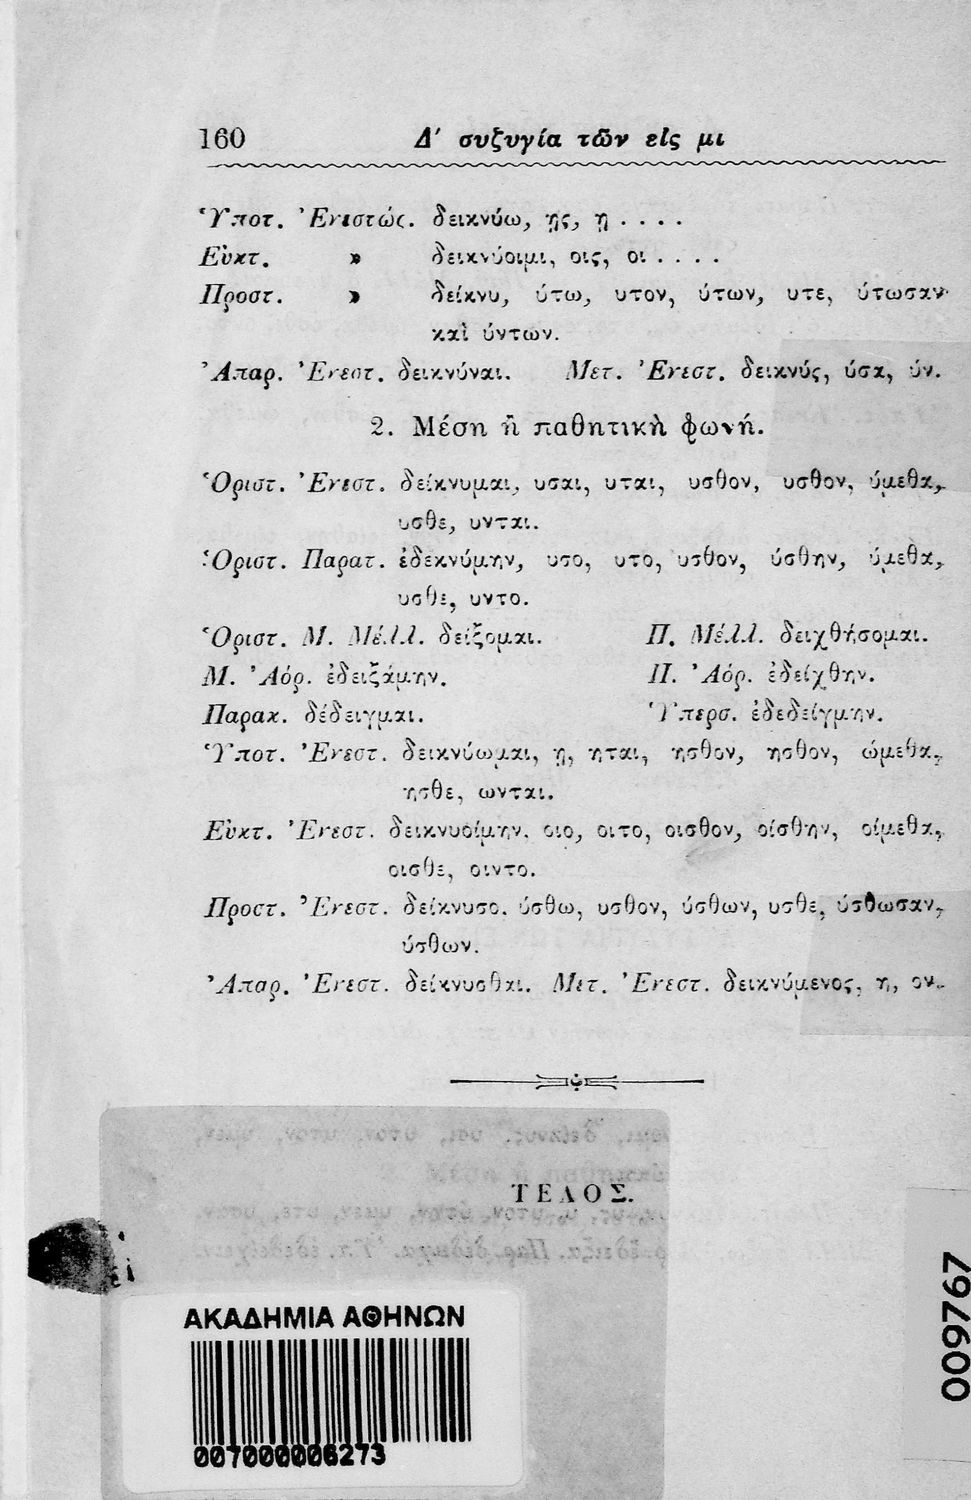 160 Δ' συζυγία τῶν εἰς μι
Ὑποτ. Ἐνεστώς. δεικνύω, ῃς, ῃ . . . .
Εὐκτ. » δεικνύοιμι, οις, οι . . . .
Προστ. » δείκνυ, ύτω, υτον, ύτων, υτε, ύτωσαν
καὶ ύντων.
Ἀπαρ. Ἐνεστ. δεικνύναι. Μετ. Ἐνεστ. δεικνύς, ύσα, ύν.
2. Μέση ἢ παθητικὴ φωνή.
Ὁριστ. Ἐνεστ. δείκνυμαι, υσαι, υται, υσθον, υσθον, ύμεθα,
υσθε, υνται.
Ὁριστ. Παρατ. ἐδεκνύμην, υσο, υτο, υσθον, ύσθην, ύμεθα,
υσθε, υντο.
Ὁριστ. Μ. Μέλλ. δείξομαι. Π. Μέλλ. δειχθήσομαι.
Μ. Ἀόρ. ἐδειξάμην. Π. Ἀόρ. ἐδείχθην.
Παρακ. δέδειγμαι. Ὑπερσ. ἐδεδείγμην.
Ὑποτ. Ἐνεστ. δεικνύωμαι, ῃ, ηται, ησθον, ησθον, ώμεθα,
ησθε, ωνται.
Εὐκτ. Ἐνεστ. δεικνυοίμην, οιο, οιτο, οισθον, οίσθην, οίμεθα,
οισθε, οιντο.
Προστ. Ἐνεστ. δείκνυσο, ύσθω, υσθον, ύσθων, υσθε, ύσθωσαν,
ύσθων.
Ἀπαρ. Ἐνεστ. δείκνυσθαι. Μετ. Ἐνεστ. δεικνύμενος, η, ον.
ΤΕΛΟΣ.
ΑΚΑΔΗΜΙΑ ΑΘΗΝΩΝ
007000006273
009767